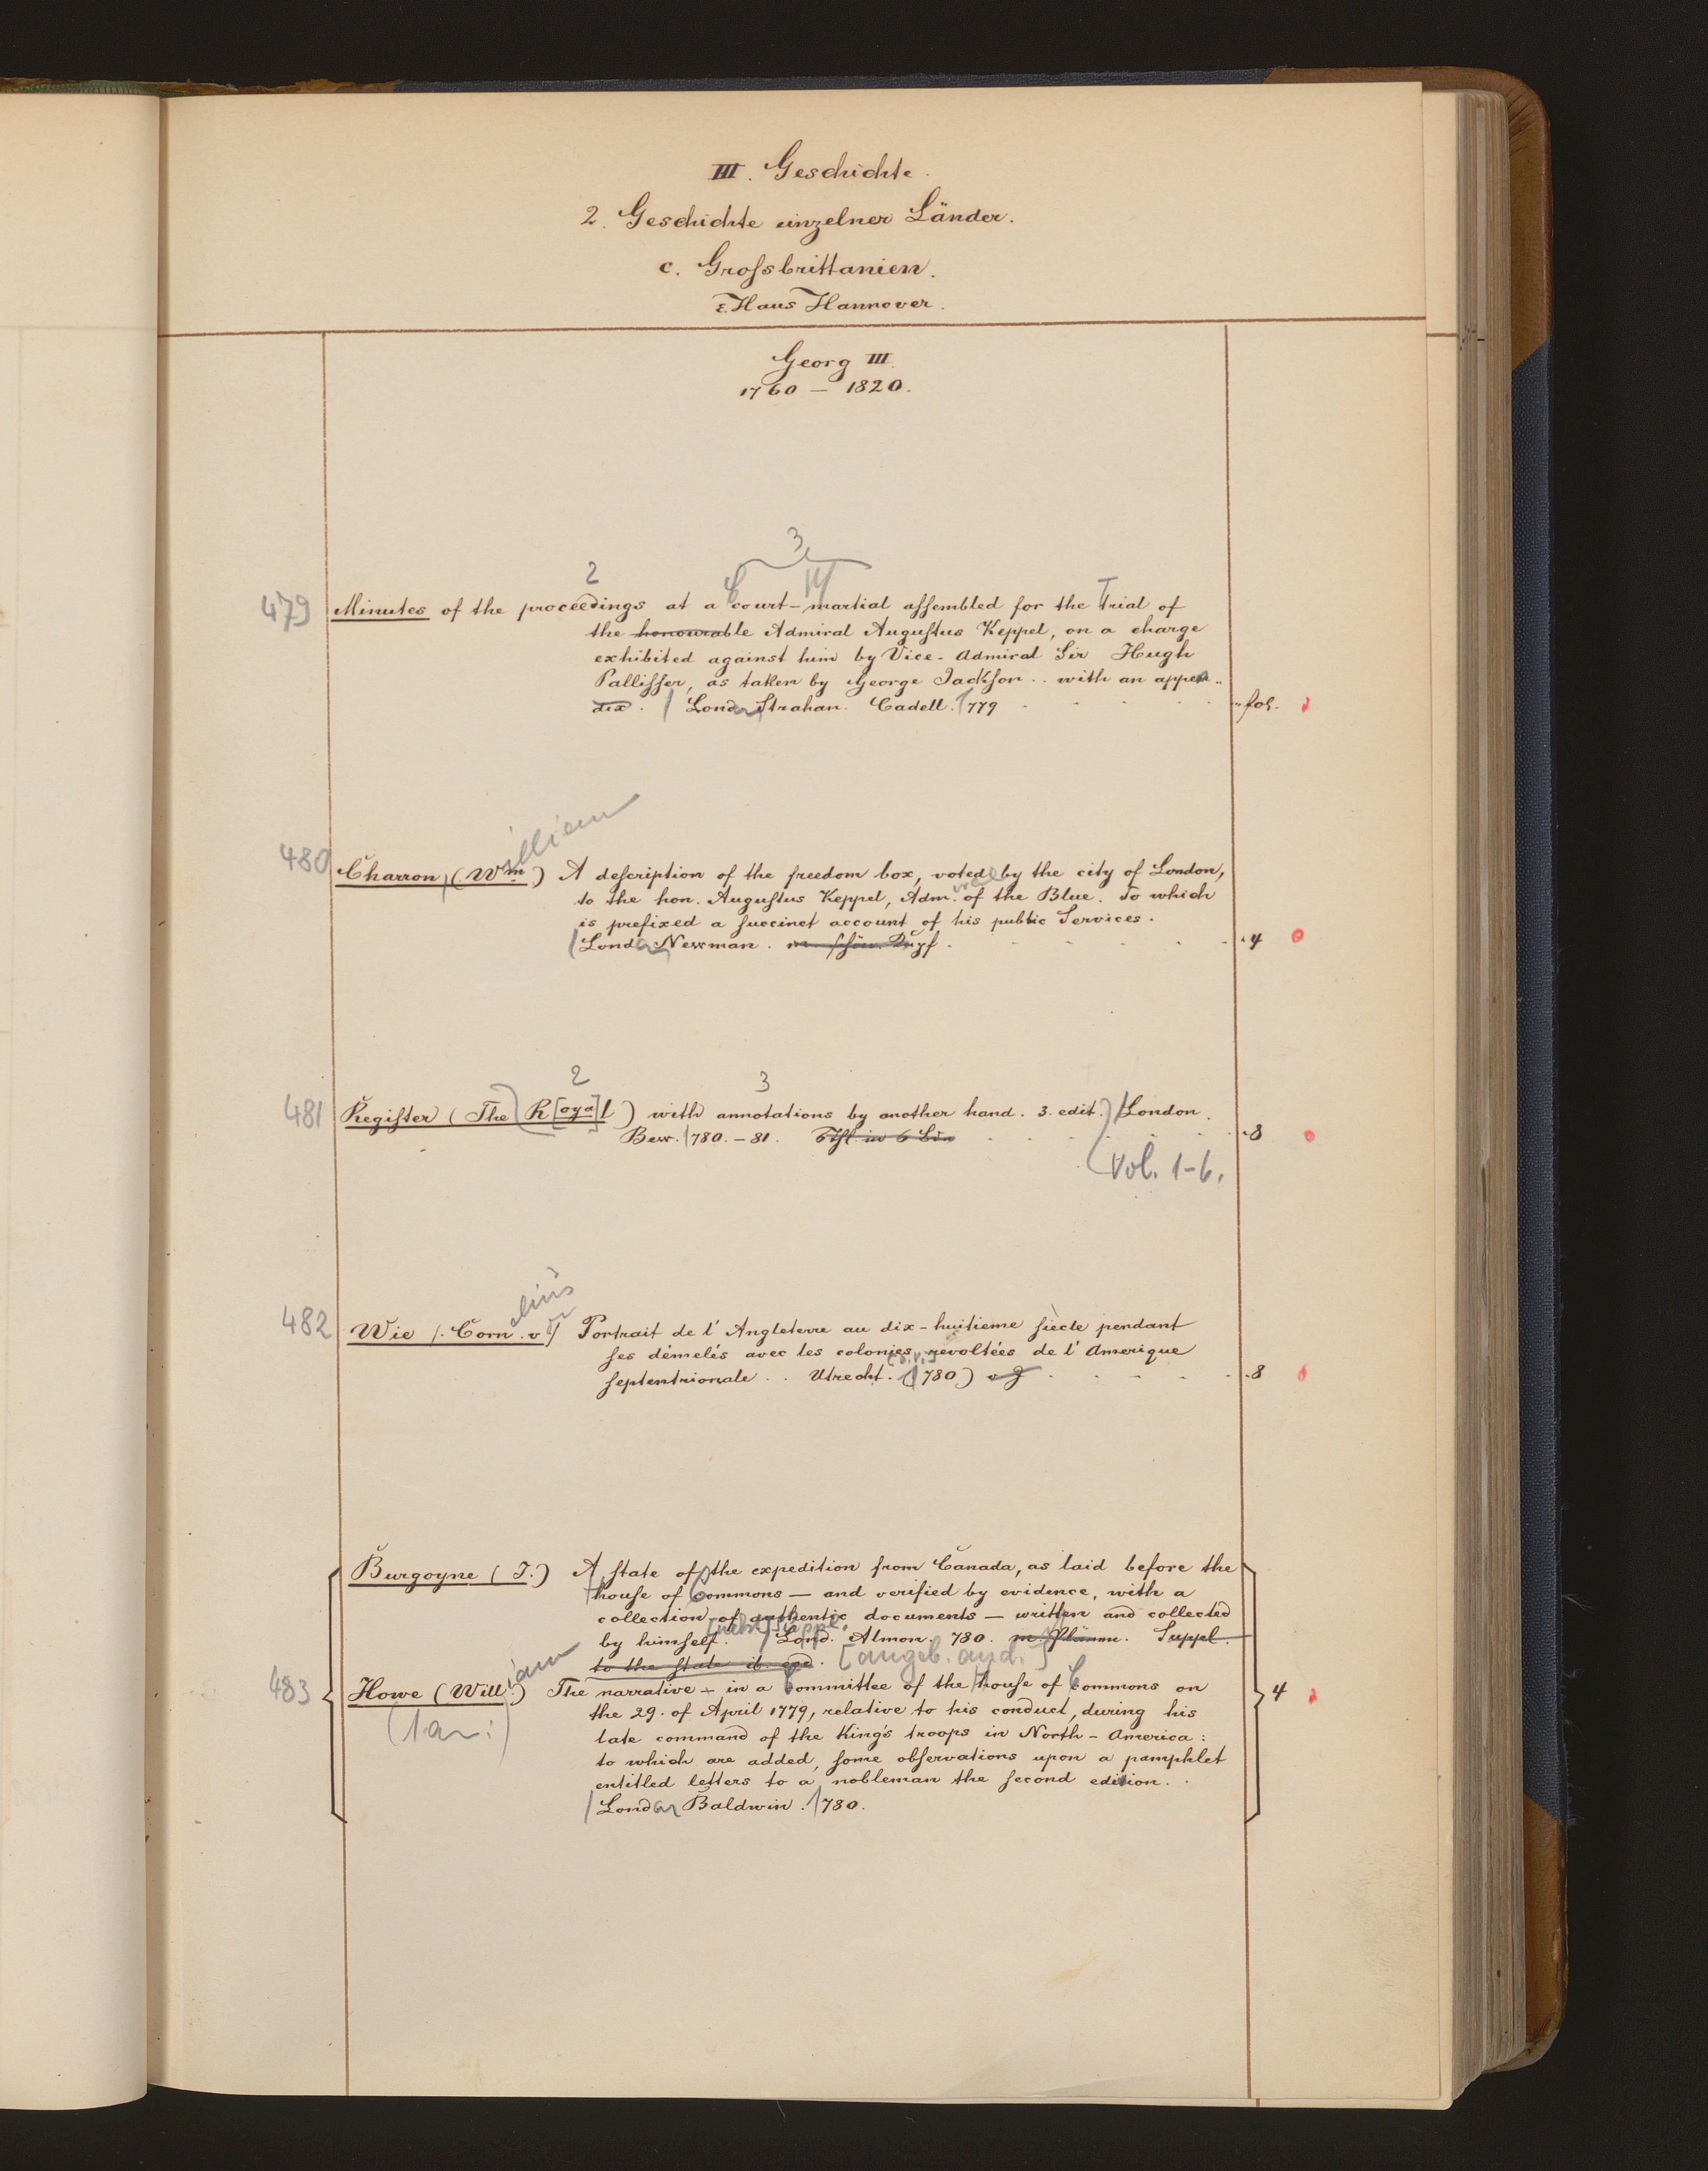 III. Geschichte.
2. Geschichte einzelner Länder.
c. Grosſbrittanien.
ε. Haus Hannover.
Georg III.
1760 — 1820.
3
2
479 Minutes of the proceedings at a Court-Martial aſsembled for the Trial of
the honourable Admiral Auguſtus Keppel, on a charge
exhibited against him by Vice-Admiral Sir Hugh
Palliſser, as taken by George Jackſon .. with an appen..
dix. / London, Strahan. Cadell. 1779 fol.
480 Charron, (William) A deſcription of the freedom box, voted by the city of London,
to the hon. Auguſtus Keppel, Admiral of the Blue. To which
is prefixed a ſuccinct account of his public Services.
/ London, Newman. m. ſchön. Kupf. 4
2 3
481 Regiſter (The R[oya]l) with annotations by another hand. 3. edit.) / London.
Bew. 1780.-81. 8
Vol. 1-6.
482 Wie /. Cornelius v. / Portrait de l'Angleterre au dix-huitieme ſiècle pendant
ſes démelés avec les colonies revoltées de l'Amerique
ſeptentrionale .. Utrecht. (1780) 8
Burgoyne (J.) A ſtate of the expedition from Canada, as laid before the
houſe of Commons — and verified by evidence, with a
collection of authentic documents — written and collected
[nebst] Suppl.
by himſelf. / Lond. Almon. 780. m. Plänen. Suppl.
to the ſtate ib. eod. [angeb. and.]
483 Howe (William) The narrative — in a Committee of the houſe of Commons on
the 29. of April 1779, relative to his conduct, during his
late command of the King's troops in North-America:
to which are added, ſome obſervations upon a pamphlet
entitled letters to a nobleman the ſecond edition.
/ London, Baldwin. 1780.
4